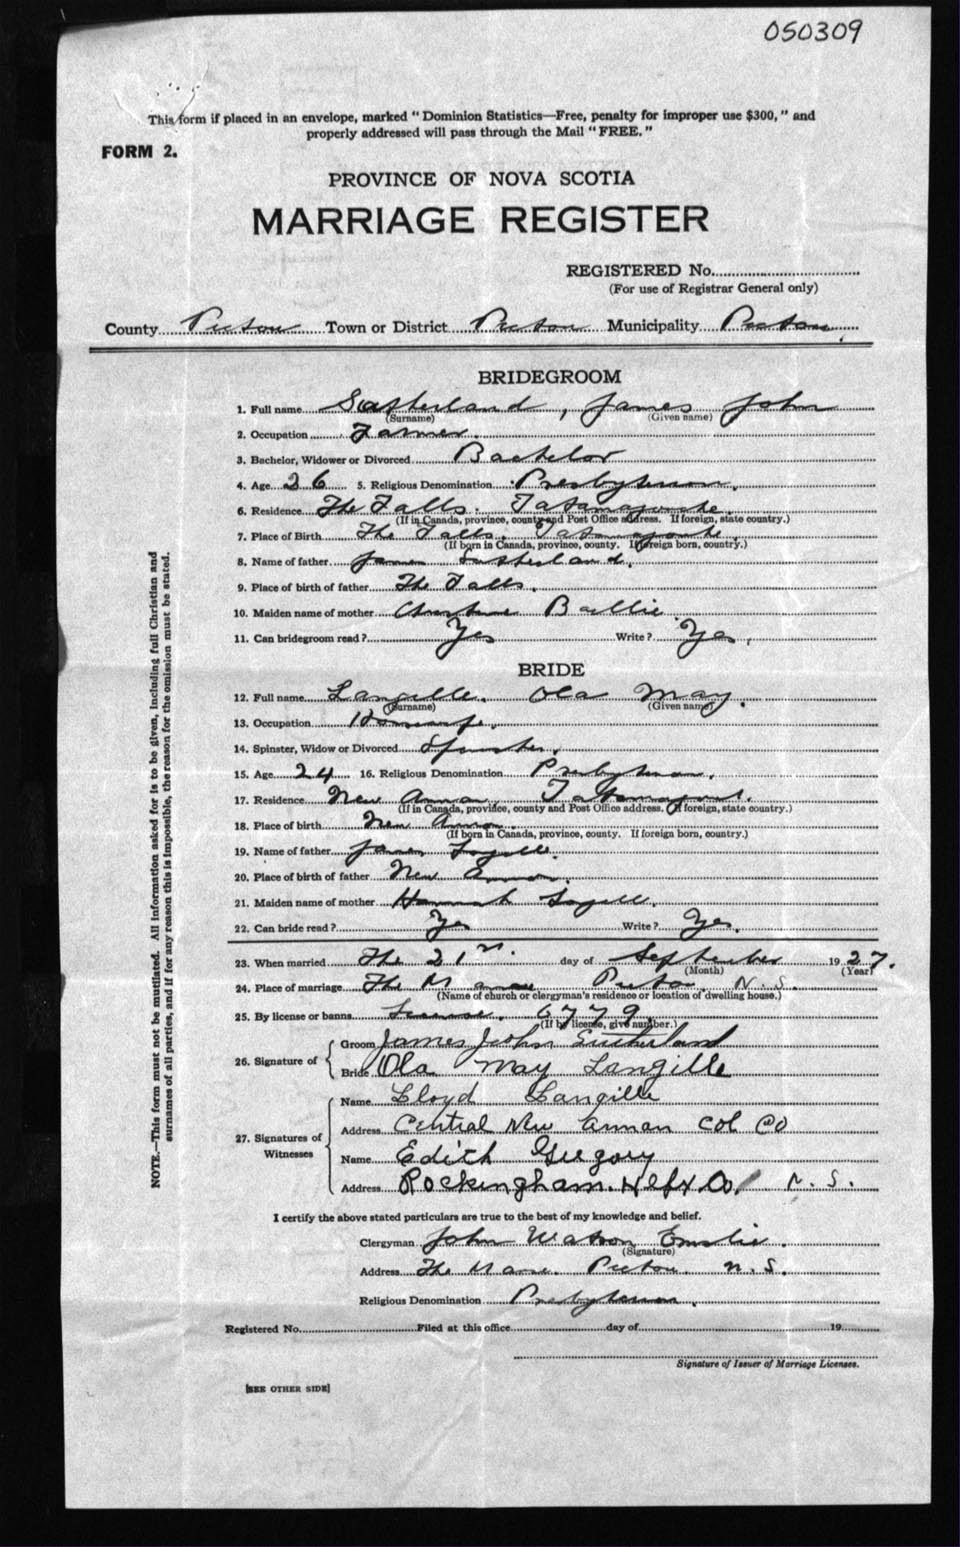 050309
This form if placed in an envelope, marked "Dominion Statistics—Free, penalty for improper use $300," and
properly addressed will pass through the Mail "FREE."
FORM 2.
PROVINCE OF NOVA SCOTIA
MARRIAGE REGISTER
REGISTERED No.
(For use of Registrar General only)
County Pictou Town or District Pictou Municipality Pictou
BRIDEGROOM
1. Full name Sutherland, James John
(Surname) (Given name)
2. Occupation Farmer.
3. Bachelor, Widower or Divorced Bachelor
4. Age 26 5. Religious Denomination Presbyterian.
6. Residence The Falls. Tatamagouche.
(If in Canada, province, county and Post Office address. If foreign, state country.)
7. Place of Birth The Falls. Tatamagouche
(If born in Canada, province, county. If foreign born, country.)
8. Name of father James Sutherland.
9. Place of birth of father The Falls.
10. Maiden name of mother Christine Baillie
11. Can bridegroom read? Yes Write? Yes.
BRIDE
12. Full name Langille. Ola May.
(Surname) (Given name)
13. Occupation
14. Spinster, Widow or Divorced Spinster.
15. Age 24 16. Religious Denomination Presbyterian.
17. Residence New Annan, Tatamagouche.
(If in Canada, province, county and Post Office address. If foreign, state country.)
18. Place of birth New Annan.
(If born in Canada, province, county. If foreign born, country.)
19. Name of father James Langille.
20. Place of birth of father New Annan.
21. Maiden name of mother Hannah Langille.
22. Can bride read? Yes Write? Yes.
23. When married The 21st. day of September 1927.
(Month) (Year)
24. Place of marriage The Manse Pictou, N. S.
(Name of church or clergyman's residence or location of dwelling house.)
25. By license or banns License. 6779.
(If by license, give number.)
26. Signature of
Groom James John Sutherland
Bride Ola May Langille
27. Signatures of Witnesses
Name Lloyd Langille
Address Central New Annan Col Co
Name Edith Gregory
Address Rockingham. Hlfx Co. N. S.
I certify the above stated particulars are true to the best of my knowledge and belief.
Clergyman John Watson Emslie.
(Signature)
Address The Manse. Pictou. N. S.
Religious Denomination Presbyterian.
Registered No. Filed at this office day of 19
Signature of Issuer of Marriage Licenses.
[SEE OTHER SIDE]
NOTE.—This form must not be mutilated. All information asked for is to be given, including full Christian and
surnames of all parties, and if for any reason this is impossible, the reason for the omission must be stated.